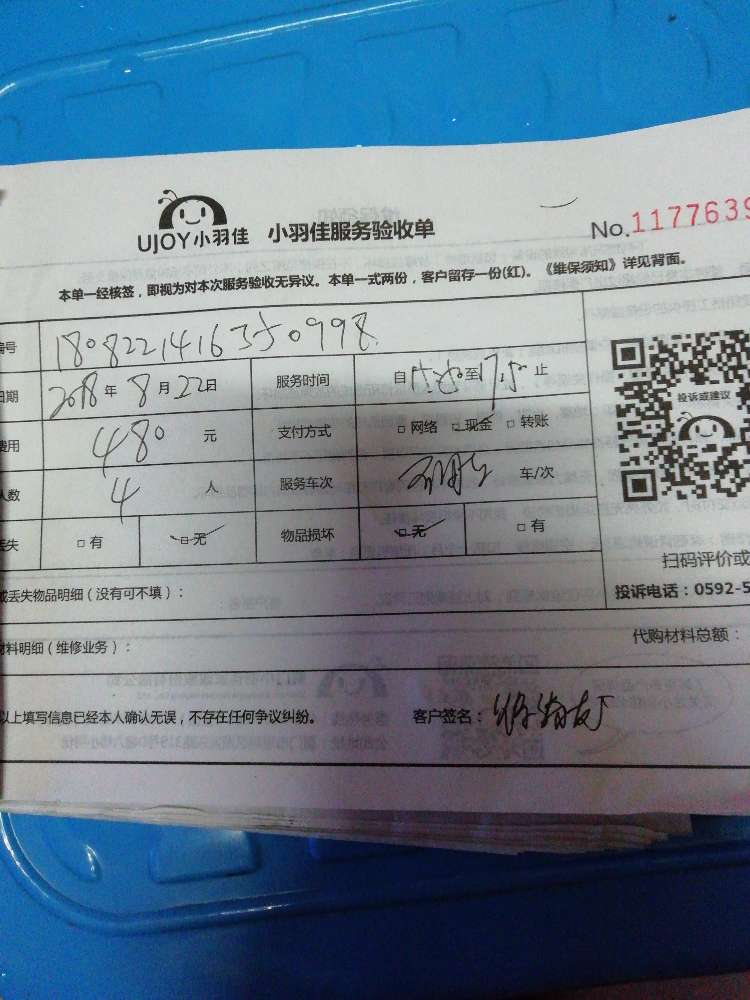 UJOY小羽佳 小羽佳服务验收单 No.1177639
本单一经核签，即视为对本次服务验收无异议。本单一式两份，客户留存一份(红)。《维保须知》详见背面。
编号 180822141635 0998
日期 2018年8月22日 服务时间 自 至17:50止
费用 480 元 支付方式 □网络 □现金 □转账
人数 4 人 服务车次 车/次
丢失 □有 □无 物品损坏 □无 □有
投诉或建议
扫码评价或
或丢失物品明细（没有可不填）：
投诉电话：0592-5
材料明细（维修业务）：
代购材料总额：
以上填写信息已经本人确认无误，不存在任何争议纠纷。 客户签名：